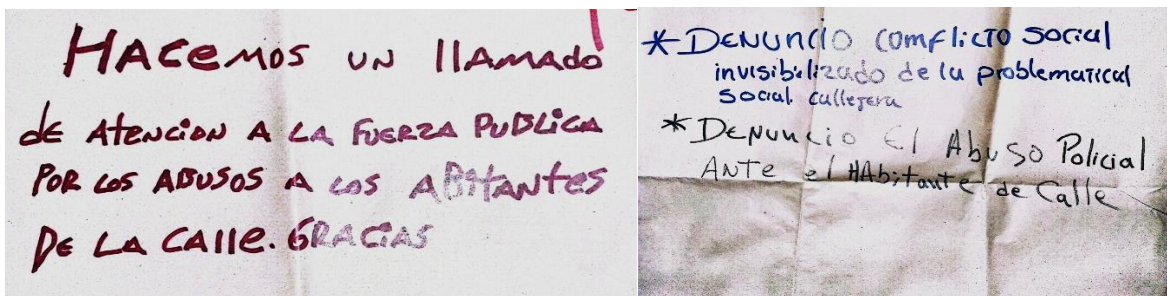 HACEMOS UN llAMADO
de AtENCION A LA FUERZA PUBLICA
POR LOS ABUSOS A LOS ABITANTES
DE LA CAlle. GRACIAS
* DENUNCIO COMFLICTO SOCIAL
invisibilizado de la problematical
SOCIAL callejera
* DENUNCIO El Abuso Policial
ANTE el HAbitante de Calle